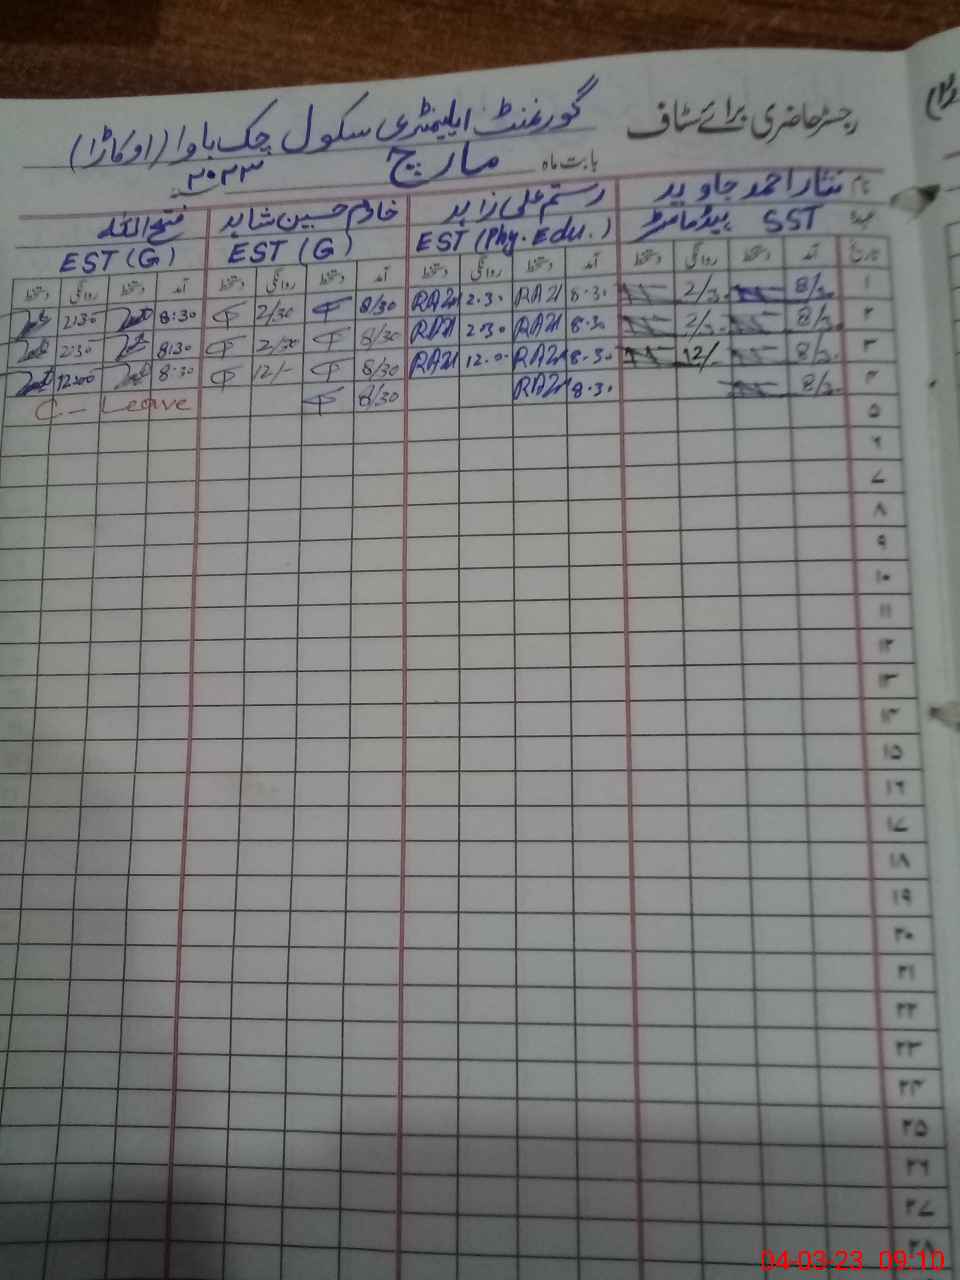 رجسٹر حاضری برائے سٹاف گورنمنٹ ایلیمنٹری سکول چک باوا (اوکاڑا)
بابت ماہ مارچ ۲۰۲۳
نام نثار احمد جاوید رستم علی زاہد خادم حسین شاہد فتح اللہ
عہدہ SST ہیڈماسٹر EST (Phy. Edu.) EST (G) EST (G)
تاریخ آمد دستخط روانگی دستخط آمد دستخط روانگی دستخط آمد دستخط روانگی دستخط آمد دستخط روانگی دستخط
۱ 8/30 2/30 8.30 RAZI 2.30 RAZI 8/30 2/30 8:30 2:30
۲ 8/30 2/30 8.30 RAZI 2:30 RAZI 8/30 2/30 8:30 2:30
۳ 8/30 12/- 8.30 RAZI 12.0 RAZI 8/30 12/- 8:30 12:00
۴ 8/30 8.30 RAZI 8/30 C - Leave
۵
۶
۷
۸
۹
۱۰
۱۱
۱۲
۱۳
۱۴
۱۵
۱۶
۱۷
۱۸
۱۹
۲۰
۲۱
۲۲
۲۳
۲۴
۲۵
۲۶
۲۷
۲۸
04-03-23 09:10